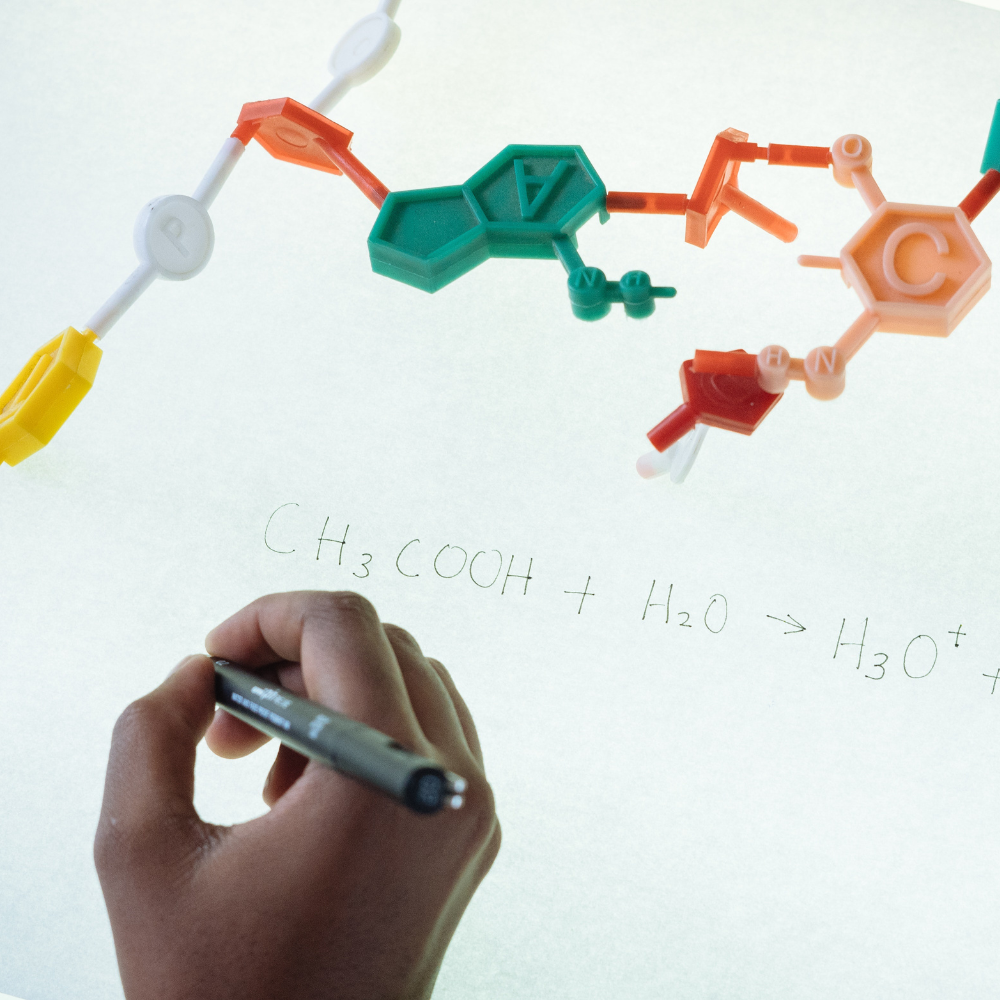 P
A
O
C
N H
H N
CH₃COOH + H₂O → H₃O⁺ +